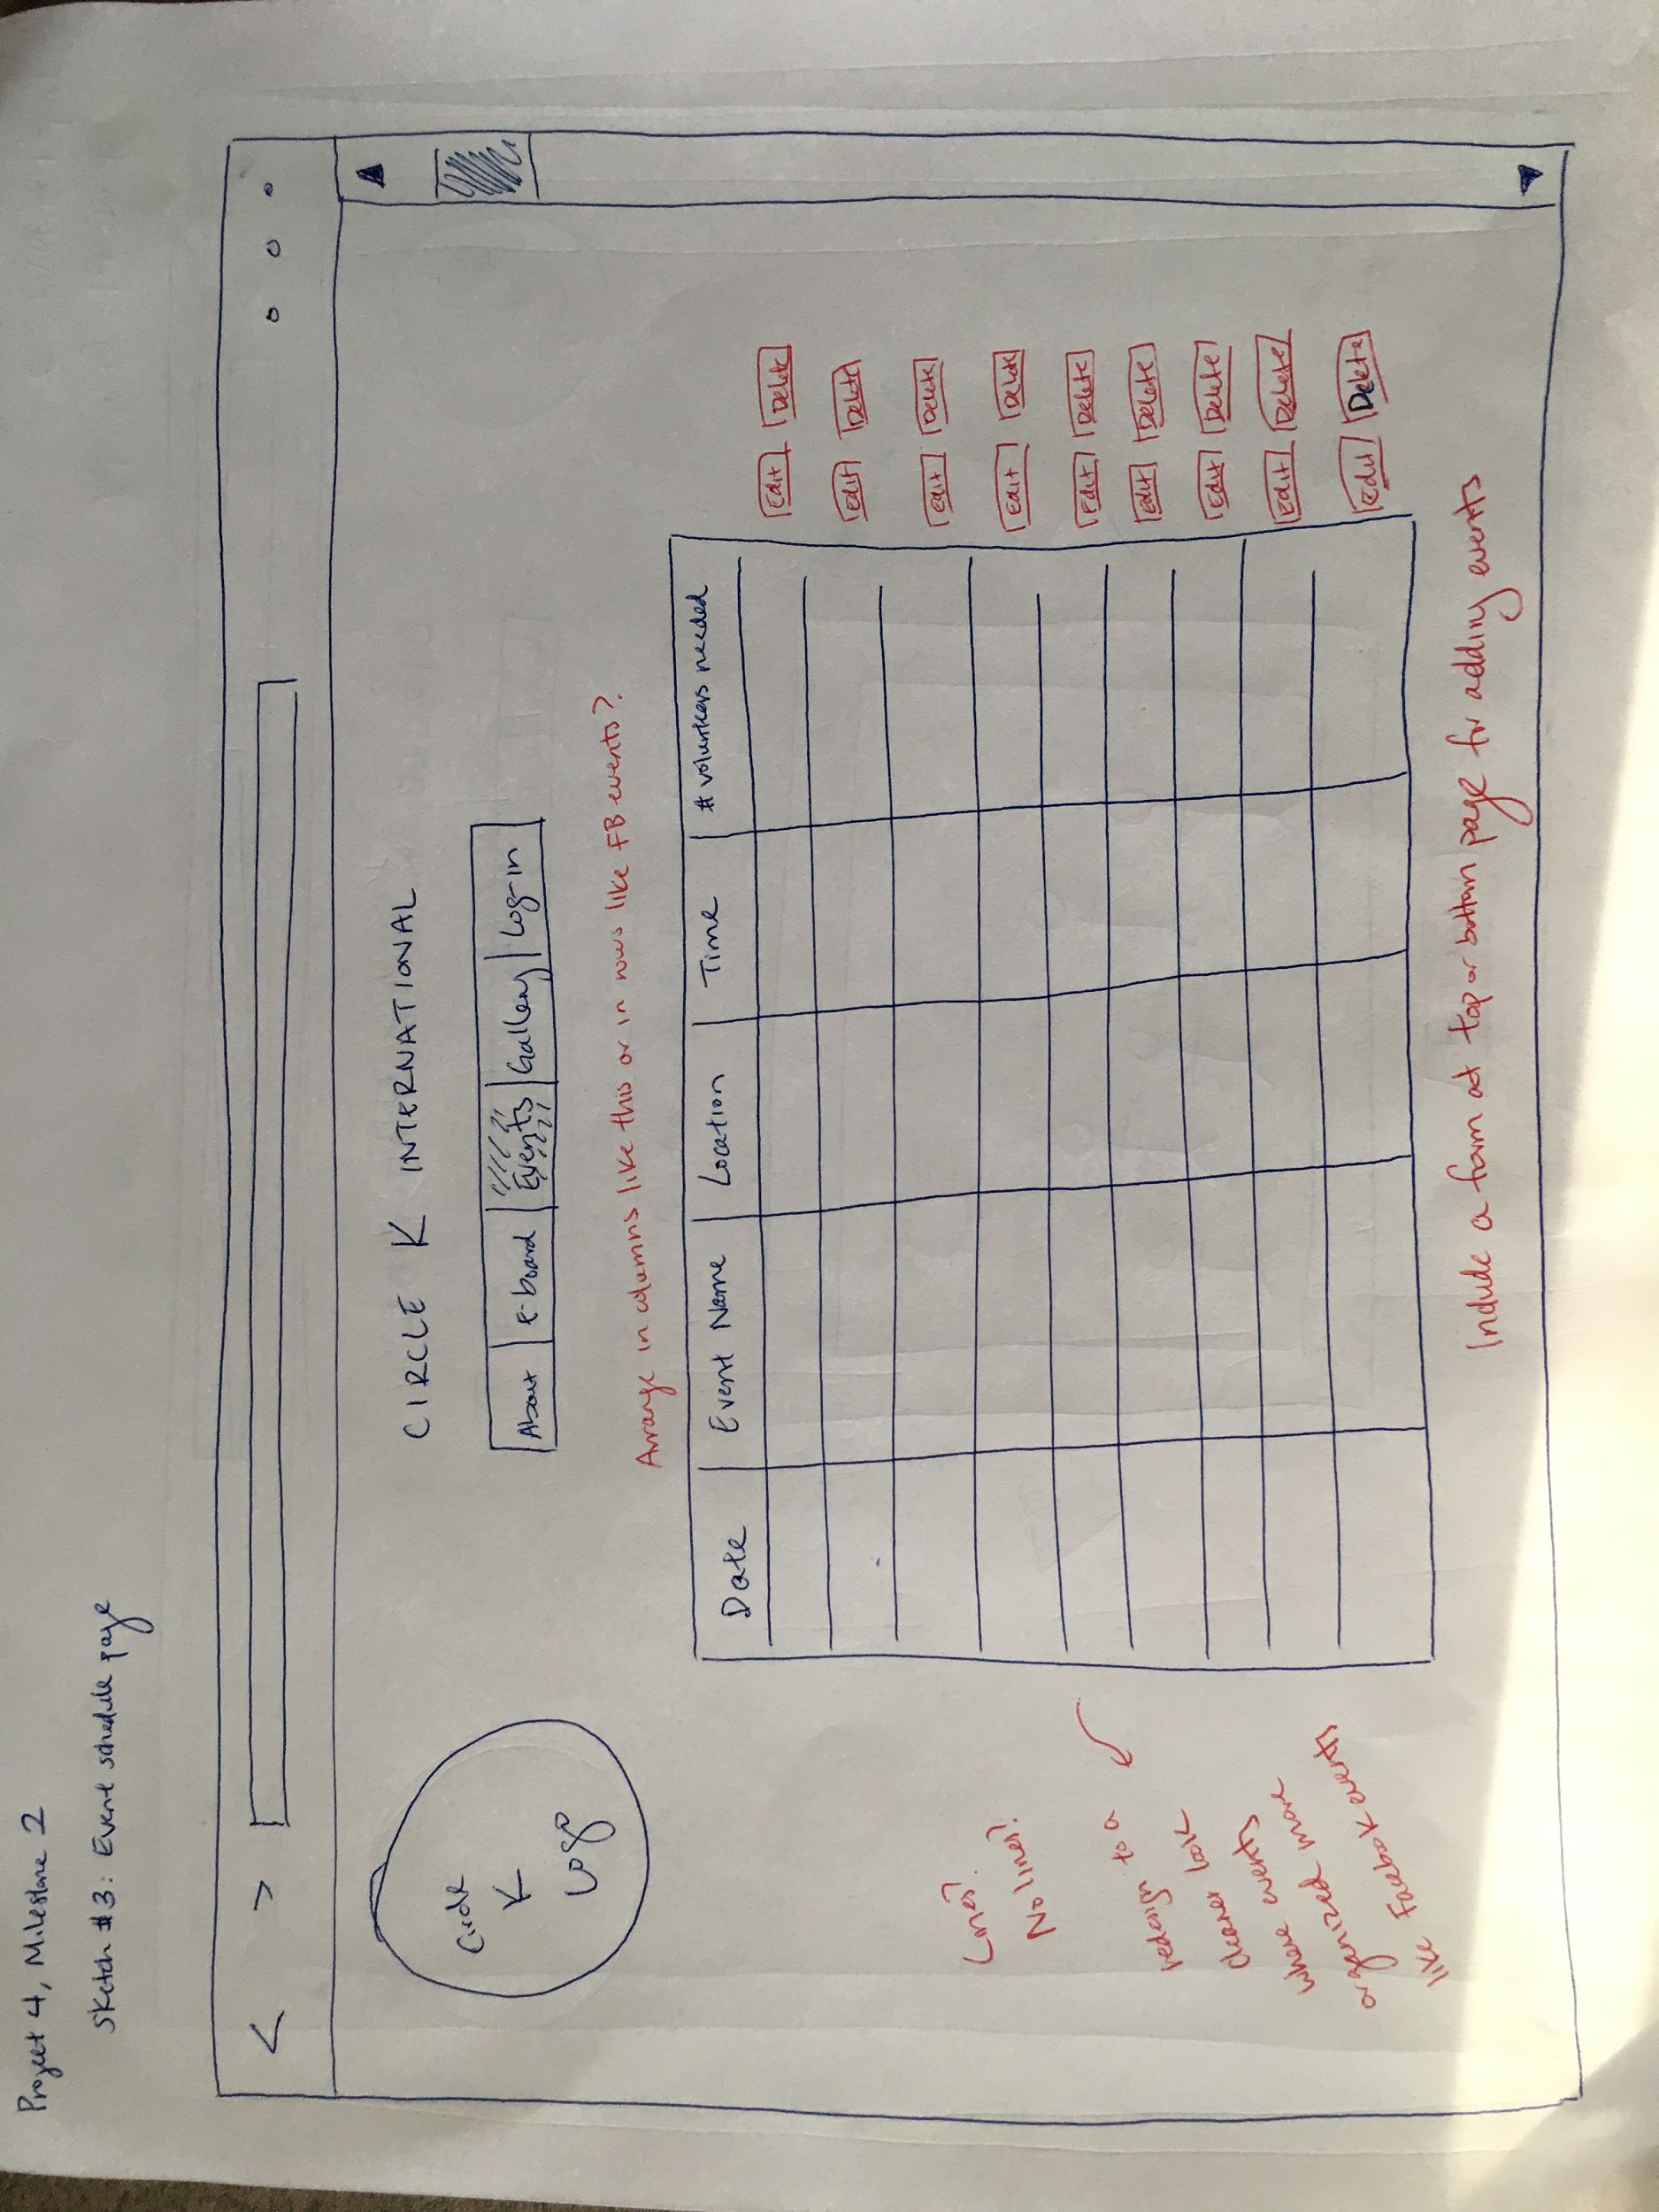 Project 4, Milestone 2
Sketch #3: Event schedule page
< >
Circle
K
Logo
CIRCLE K INTERNATIONAL
About e-board Events Gallery Log-in
Arrange in columns like this or in rows like FB events?
Date Event Name Location Time # volunteers needed
Edit Delete
edit Delete
edit Delete
edit Delete
edit Delete
edit Delete
edit Delete
edit Delete
edit Delete
Lines?
No lines?
redesign to a
cleaner look
where events
organized more
like Facebook events
Include a form at top or bottom page for adding events